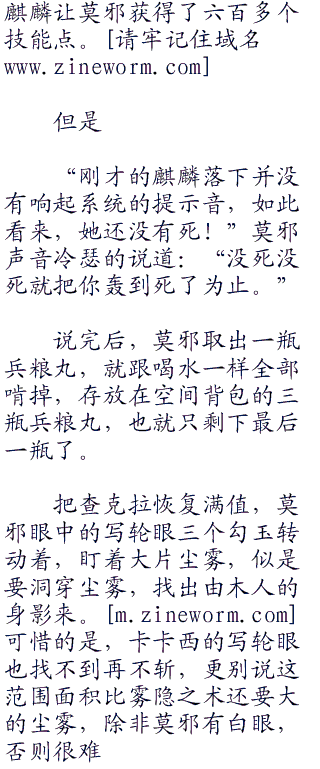 麒麟让莫邪获得了六百多个
技能点。[请牢记住域名
www.zineworm.com]
但是
“刚才的麒麟落下并没
有响起系统的提示音，如此
看来，她还没有死！”莫邪
声音冷瑟的说道：“没死没
死就把你轰到死了为止。”
说完后，莫邪取出一瓶
兵粮丸，就跟喝水一样全部
啃掉，存放在空间背包的三
瓶兵粮丸，也就只剩下最后
一瓶了。
把查克拉恢复满值，莫
邪眼中的写轮眼三个勾玉转
动着，盯着大片尘雾，似是
要洞穿尘雾，找出由木人的
身影来。[m.zineworm.com]
可惜的是，卡卡西的写轮眼
也找不到再不斩，更别说这
范围面积比雾隐之术还要大
的尘雾，除非莫邪有白眼，
否则很难